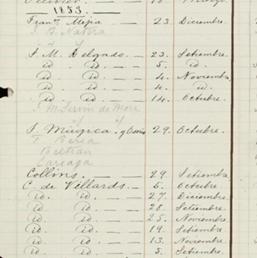 1855.
Franco Mejia — 23. Diciembre.
J. B. Natera
J. M. Delgado. — 23. Setiembre.
id id — 5. id
id id — 4. Noviembre
id id — 14. Octubre.
J. Mugica. y Cami 29. Octubre.
Beltran
Careaga
Collins. — 29. Setiembre
C. de Villards. — 6. Octubre.
id. id. — 27. Diciembre.
id. id. — 28. Setiembre.
id. id. — 25. Noviembre.
id. id. — 19. Setiembre.
id. id. — 13. Noviembre.
id. id. — 5. Setiembre.